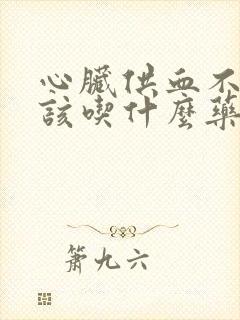 心臟供血不
該喫什麼藥
簫九六